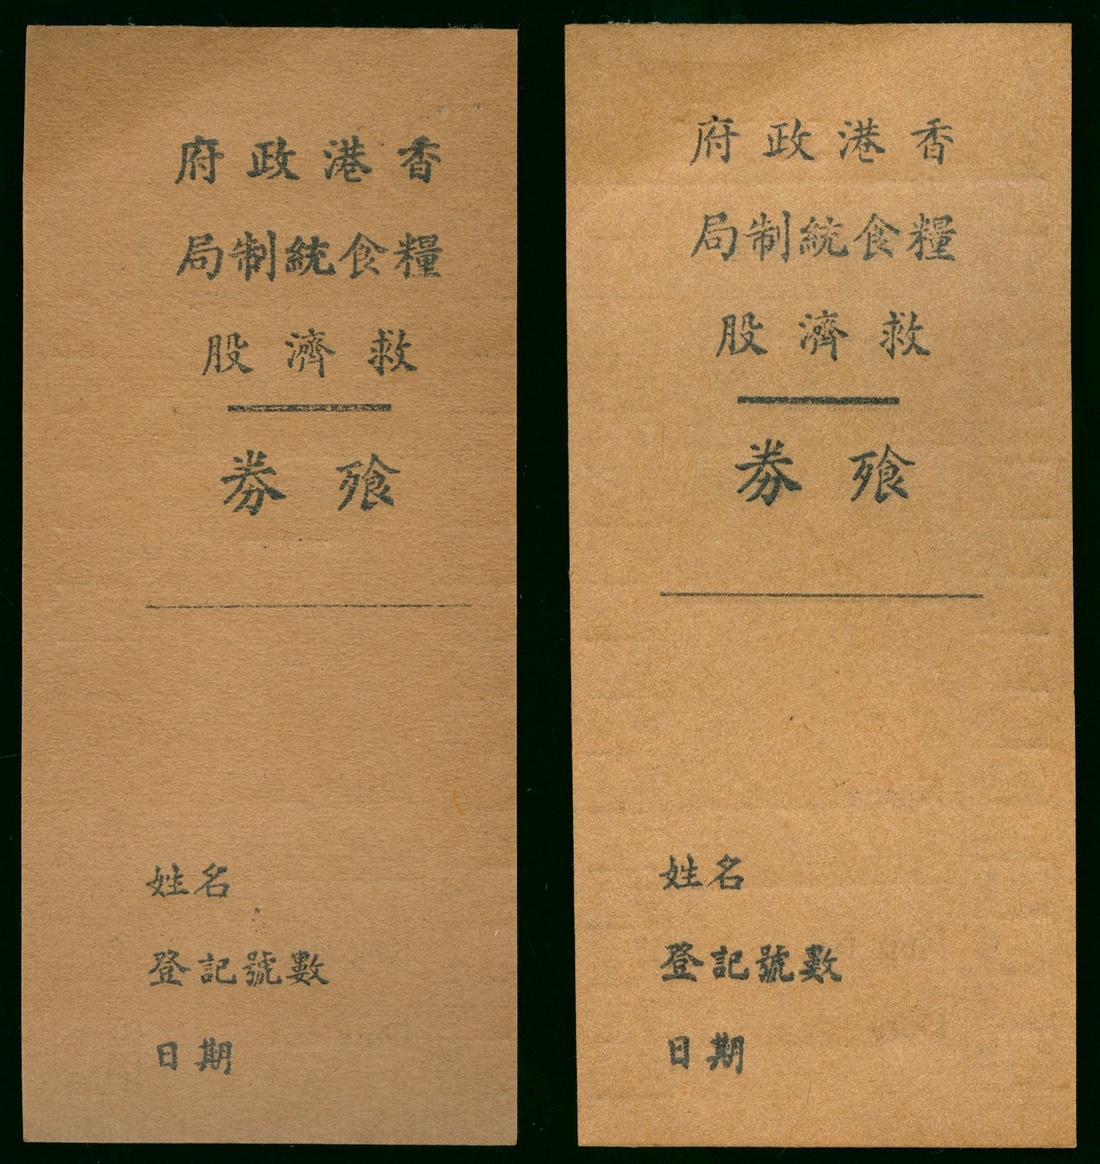 香港政府
糧食統制局
救濟股
飱劵
姓名
登記號數
日期
香港政府
糧食統制局
救濟股
飱劵
姓名
登記號數
日期